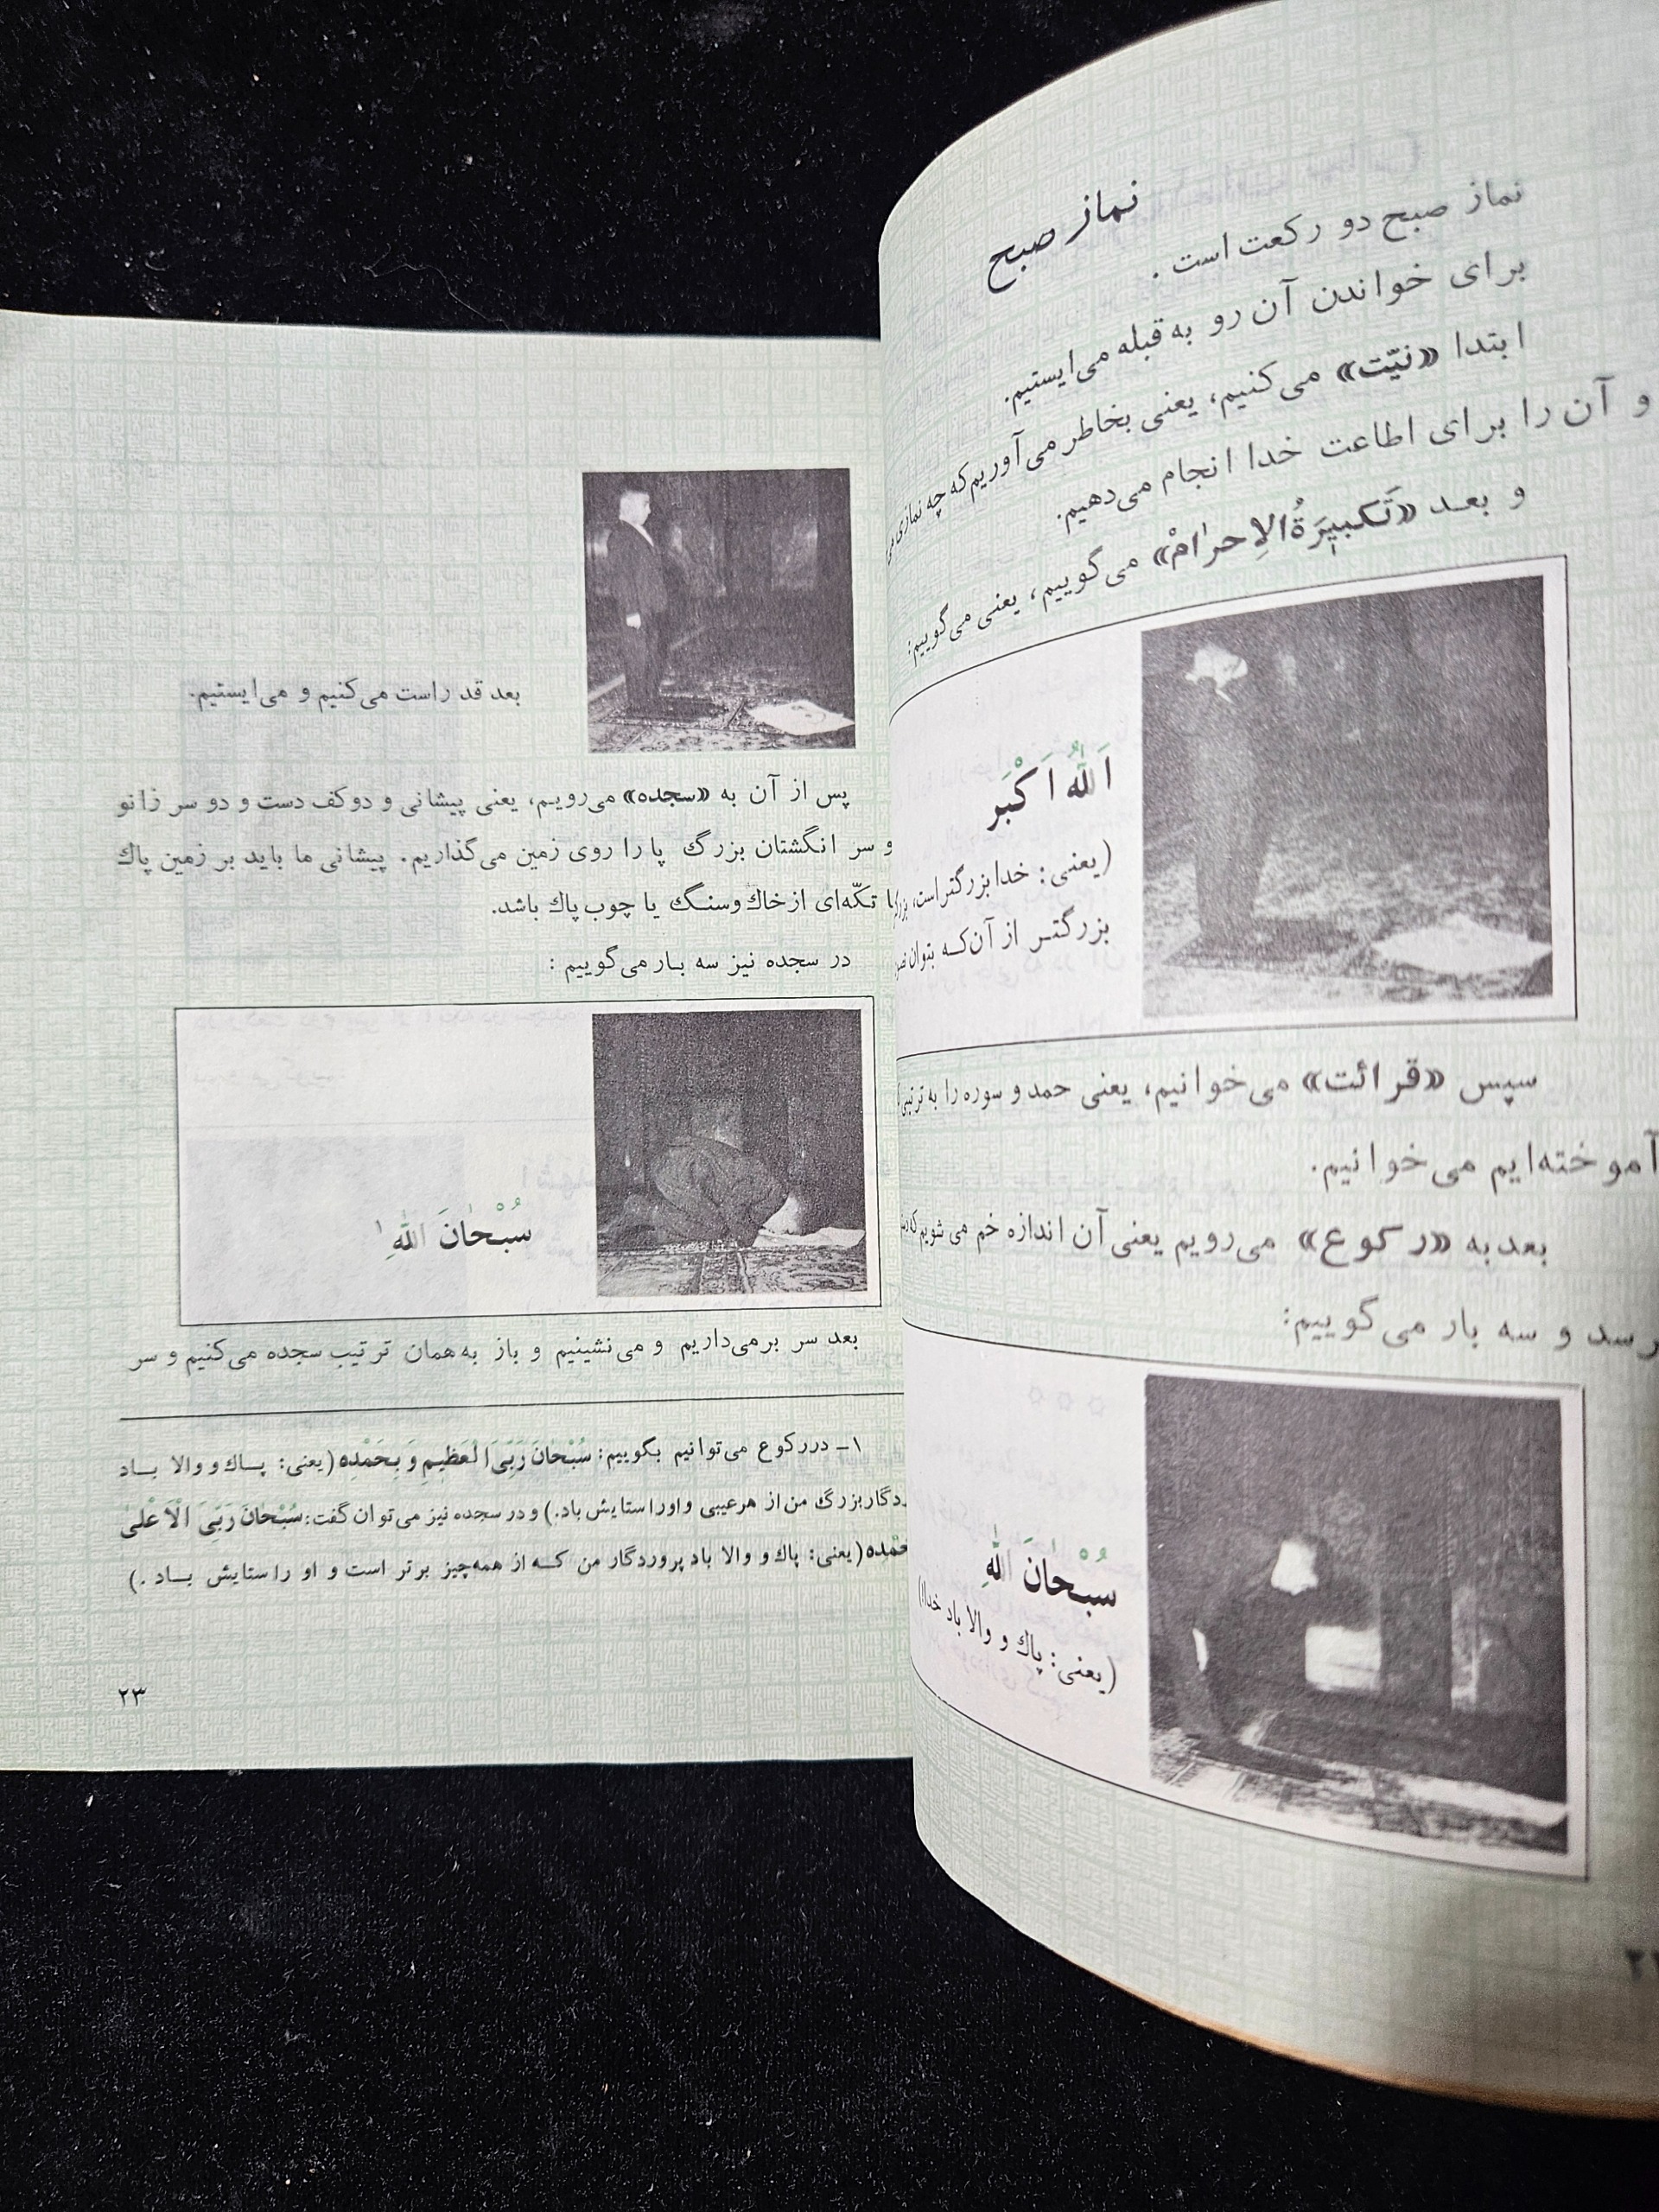 نماز صبح
نماز صبح دو رکعت است .
برای خواندن آن رو به قبله می‌ایستیم.
ابتدا «نیّت» می‌کنیم، یعنی بخاطر می‌آوریم که چه نمازی
و آن را برای اطاعت خدا انجام می‌دهیم.
و بعد «تَکبیرَةُالاِحرامْ» می‌گوییم، یعنی می‌گوییم:
اَللّٰهُ اَکْبَر
(یعنی: خدا بزرگتر است،
بزرگتر از آن‌که بتوان
سپس «قرائت» می‌خوانیم، یعنی حمد و سوره را به ترتیبی
آموخته‌ایم می‌خوانیم.
بعد به «رکوع» می‌رویم یعنی آن اندازه خم می‌شویم که
برسد و سه بار می‌گوییم:
سُبْحٰانَ اللّٰهِ
(یعنی: پاك و والا باد خدا!)
بعد قد راست می‌کنیم و می‌ایستیم.
پس از آن به «سجده» می‌رویم، یعنی پیشانی و دوکف دست و دو سر زانو
و سر انگشتان بزرگ پا را روی زمین می‌گذاریم. پیشانی ما باید بر زمین پاك
یا تکّه‌ای از خاك وسنگ یا چوب پاك باشد.
در سجده نیز سه بار می‌گوییم :
سُبْحٰانَ اللّٰهِ ۱
بعد سر برمی‌داریم و می‌نشینیم و باز به‌همان ترتیب سجده می‌کنیم و سر
۱ــ دررکوع می‌توانیم بگوییم: سُبْحٰانَ رَبِّیَ الْعَظیمِ وَ بِحَمْدِه (یعنی: پاك و والا باد
بزرگ من از هرعیبی و اورا ستایش باد.) و در سجده نیز می‌توان گفت: سُبْحٰانَ رَبِّیَ الْاَعْلیٰ
(یعنی: پاك و والا باد پروردگار من که از همه‌چیز برتر است و او را ستایش باد .)
۲۳